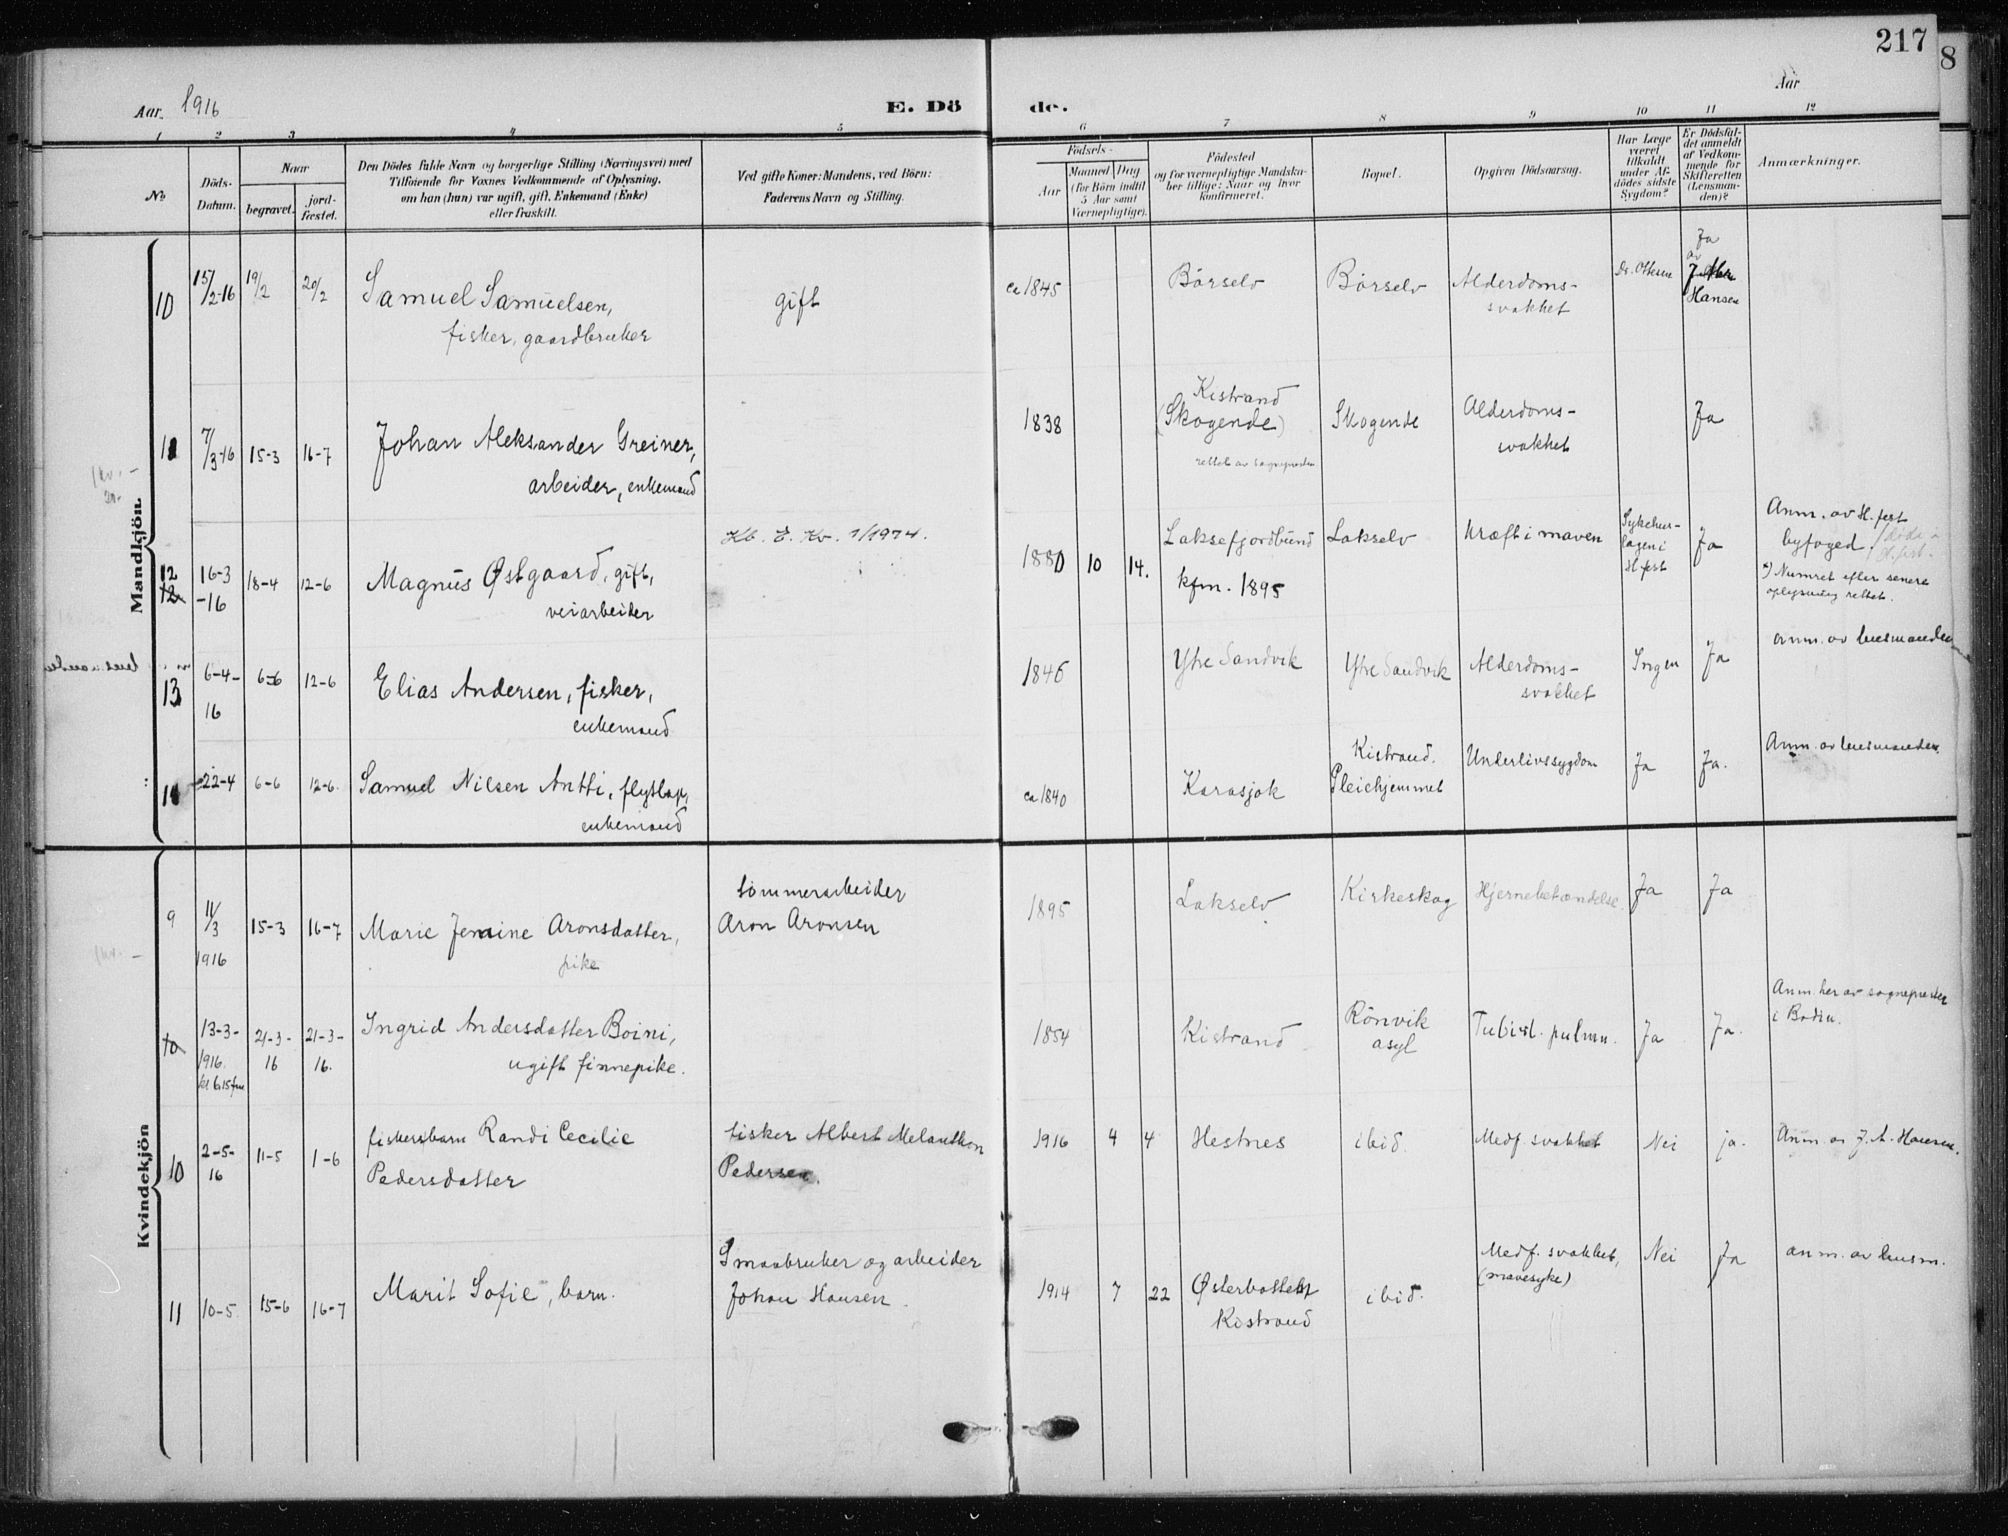 217
8
Aar 1916
E. Dö
de.
Aar
1 2 3 4 5
6 7 8 9 10 11 12
No
Döds-
Datum.
Naar
begravet.
jord-
fæstet.
Den Dödes fulde Navn og borgerlige Stilling (Næringsvei) med
Tilföiende for Voxnes Vedkommende af Oplysning,
om han (hun) var ugift, gift, Enkemand (Enke)
eller fraskilt.
Ved gifte Koner: Mandens, ved Börn:
Faderens Navn og Stilling.
Födsels-
Aar
Maaned Dag
(for Börn indtil
5 Aar samt
Værnepligtige).
Födested
og for værnepligtige Mandska-
ber tillige: Naar og hvor
konfirmeret.
Bopæl.
Opgiven Dödsaarsag.
Har Læge
været
tilkaldt
under Af-
dödes sidste
Sygdom?
Er Dödsfal-
det anmeldt
af Vedkom-
mende for
Skifteretten
(Lensman-
den)?
Anmærkninger.
Mandkjön
10 15/2-16 19/2 20/2 Samuel Samuelsen,
fisker, gaardbruker
gift
ca 1845 Börselv Börselv Alderdoms-
svakhet
Dr. Ottesen
Ja
av
Hansen
11 7/3-16 15-3 16-7 Johan Aleksander Greiner,
arbeider, enkemand
1838 Kistrand
(Skogende)
rettet av sognepresten
Skogende Alderdoms-
svakhet
Ja
12 16-3
-16
18-4 12-6 Magnus Østgaard, gift,
veiarbeider
Kb. E. Kv. 7/1974.
1880 10 14. Laksefjordbund
kfm. 1895
Lakselv Kræft i maven
Sykehus-
lægen i
H.fest
Ja
Anm. av H.fest
byfoged.
*) Numret efter senere
oplysning rettet.
13 6-4-
16
6-6 12-6 Elias Andersen, fisker,
enkemand
1846 Ytre Sandvik Ytre Sandvik Alderdoms-
svakhet
Ingen Ja anm. av lensmanden
14 22-4 6-6 12-6. Samuel Nilsen Antti, flytlap,
enkemand
ca 1840 Karasjok Kistrand.
Pleiehjemmet
Underlivssygdom Ja Ja. Anm. av lensmanden.
Kvindekjön
9 11/3
1916
15-3 16-7 Marie Jensine Aronsdatter,
pike
tömmerarbeider
Aron Aronsen
1895 Lakselv Kirkeskog Hjernebetændelse. Ja Ja
10 13-3-
1916.
kl 6.15 fm
21-3-
16
21-3-
16.
Ingrid Andersdatter Boini,
ugift finnepike.
1854 Kistrand Rönvik
asyl
Tuberkl. pulmn. Ja Ja.
Anm. her av sognepresten
i Bodin.
10 2-5-
16
11-5 1-6 fiskersbarn Randi Cecilie
Pedersdatter
fisker Albert Melankton
Pedersen.
1916 4 4 Hestnes ibid. Medf. svakhet Nei ja. Anm. av J. A. Hansen.
11 10-5. 15-6 16-7 Marit Sofie, barn.
Smaabruker og arbeider
Johan Hansen.
1914 7 22 Østerbotten
Kistrand
ibid. Medf. svakhet,
(mavesyke)
Nei Ja anm. av lensm.